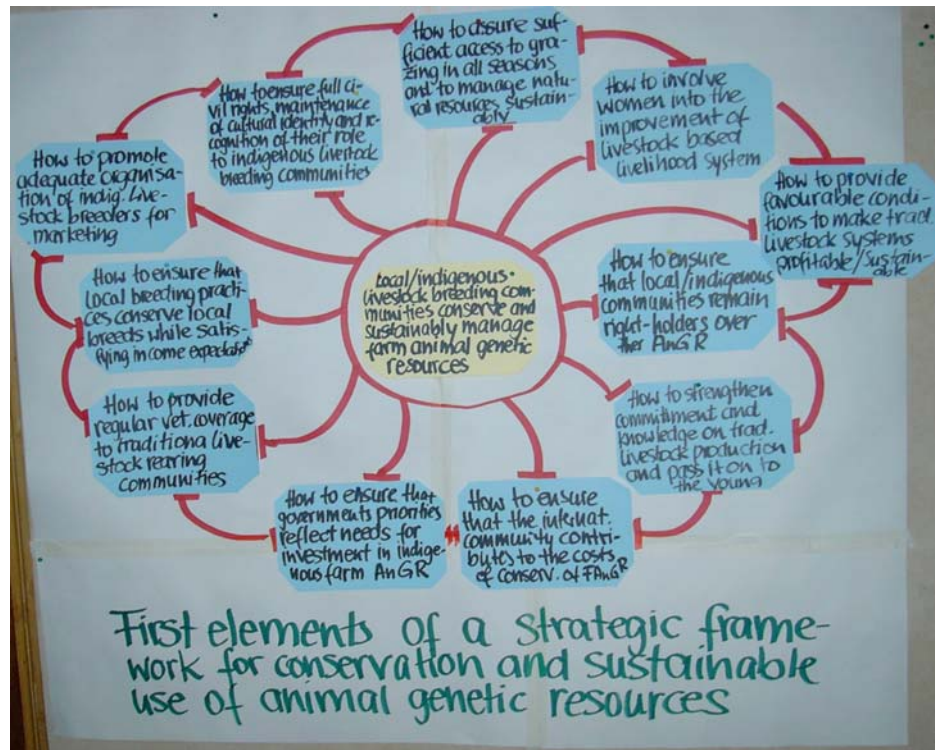 How to assure suf-
ficient access to gra-
zing in all seasons
and to manage natu-
ral resources sustain-
ably
How to involve
women into the
improvement of
livestock based
livelihood system
How to provide
favourable condi-
tions to make trad.
livestock systems
profitable/sustain-
able
How to ensure
that local/indigenous
communities remain
right-holders over
their AnGR
How to strengthen
commitment and
knowledge on trad.
livestock production
and pass it on to
the young
How to ensure
that the internat.
community contri-
butes to the costs
of conserv. of FAnGR
How to ensure that
governments priorities
reflect needs for
investment in indige-
nous farm AnGR
How to provide
regular vet. coverage
to traditional live-
stock rearing
communities
How to ensure that
local breeding practi-
ces conserve local
breeds while satis-
fying income expectations
How to promote
adequate organisa-
tion of indig. live-
stock breeders for
marketing
How to ensure full ci-
vil rights, maintenance
of cultural identity and re-
cognition of their role
to indigenous livestock
breeding communities
Local/indigenous
livestock breeding com-
munities conserve and
sustainably manage
farm animal genetic
resources
First elements of a strategic frame-
work for conservation and sustainable
use of animal genetic resources